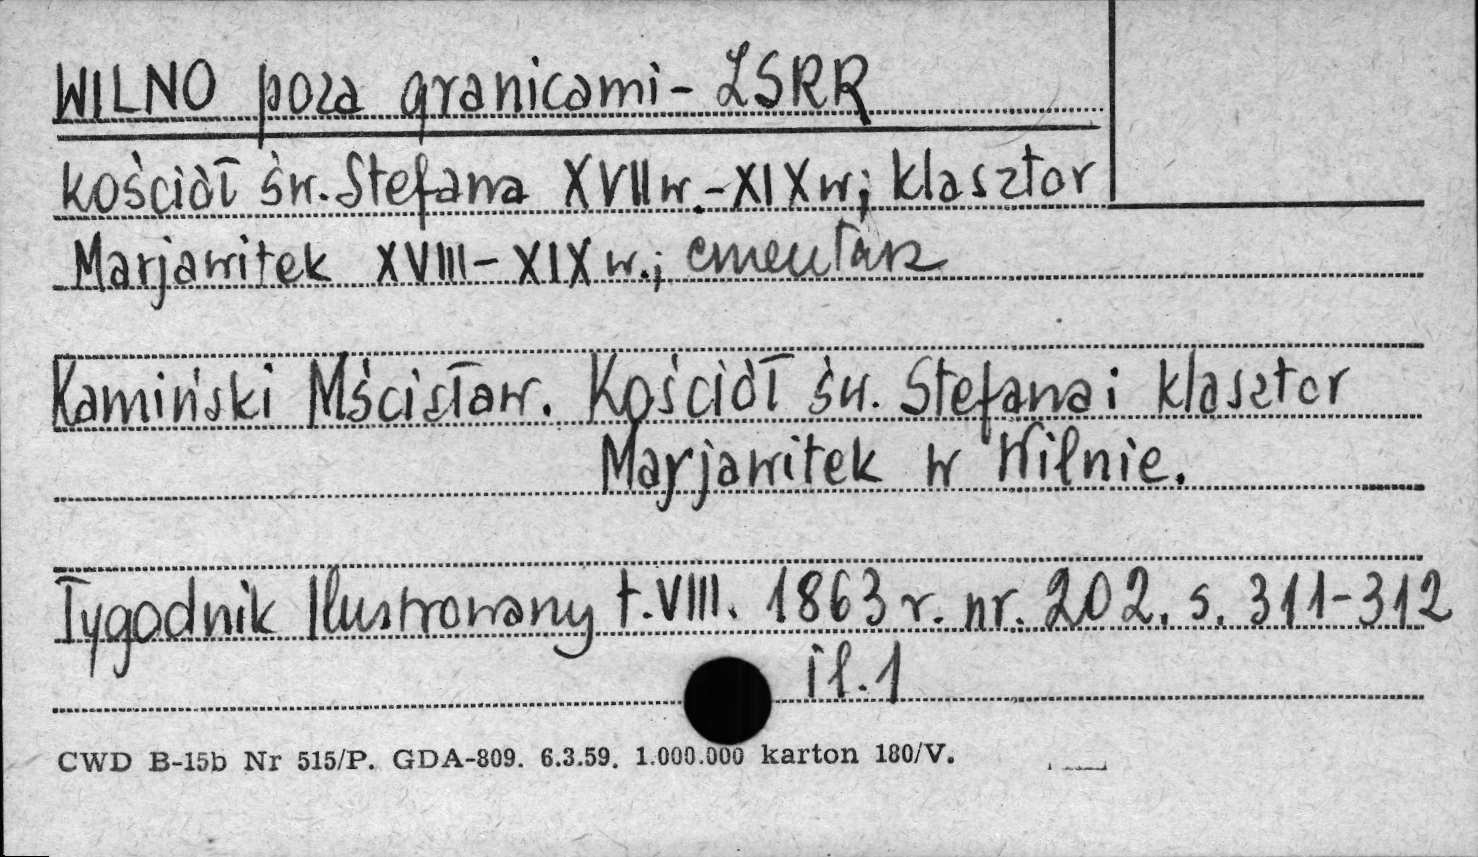 WILNO poza granicami - ZSRR
kościół św. Stefana XVII w. - XIX w; klasztor
Marjawitek XVIII - XIX w.; cmentarz
Kamiński Mścisław. Kościół św. Stefana i klasztor
Marjawitek w Wilnie.
Tygodnik Ilustrowany t. VIII. 1863 r. nr. 202. s. 311-312
il. 1
CWD B-15b Nr 515/P. GDA-809. 6.3.59. 1.000.000 karton 180/V.